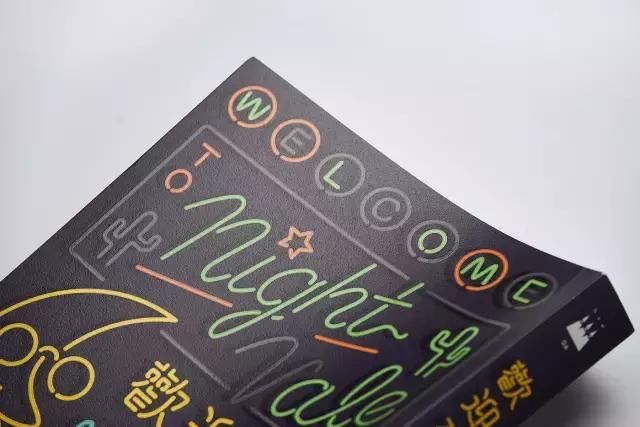 WELCOME
TO
Night
Vale
歡
歡迎